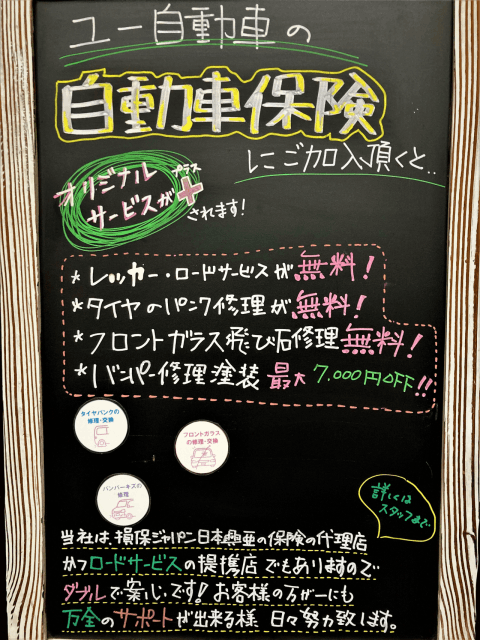 ユー自動車の
自動車保険
にご加入頂くと..
オリジナル
サービスが
プラス
+
されます!
* レッカー・ロードサービスが無料!
* タイヤのパンク修理が無料!
* フロントガラス飛び石修理無料!
* バンパー修理塗装 最大 7,000円OFF!!
タイヤパンクの
修理・交換
フロントガラスの
修理・交換
バンパーキズの
修理
詳しくは
スタッフまで
当社は、損保ジャパン日本興亜の保険の代理店
かつロードサービスの提携店でもありますので
ダブルで安心です!お客様の万が一にも
万全のサポートが出来る様、日々努力致します。